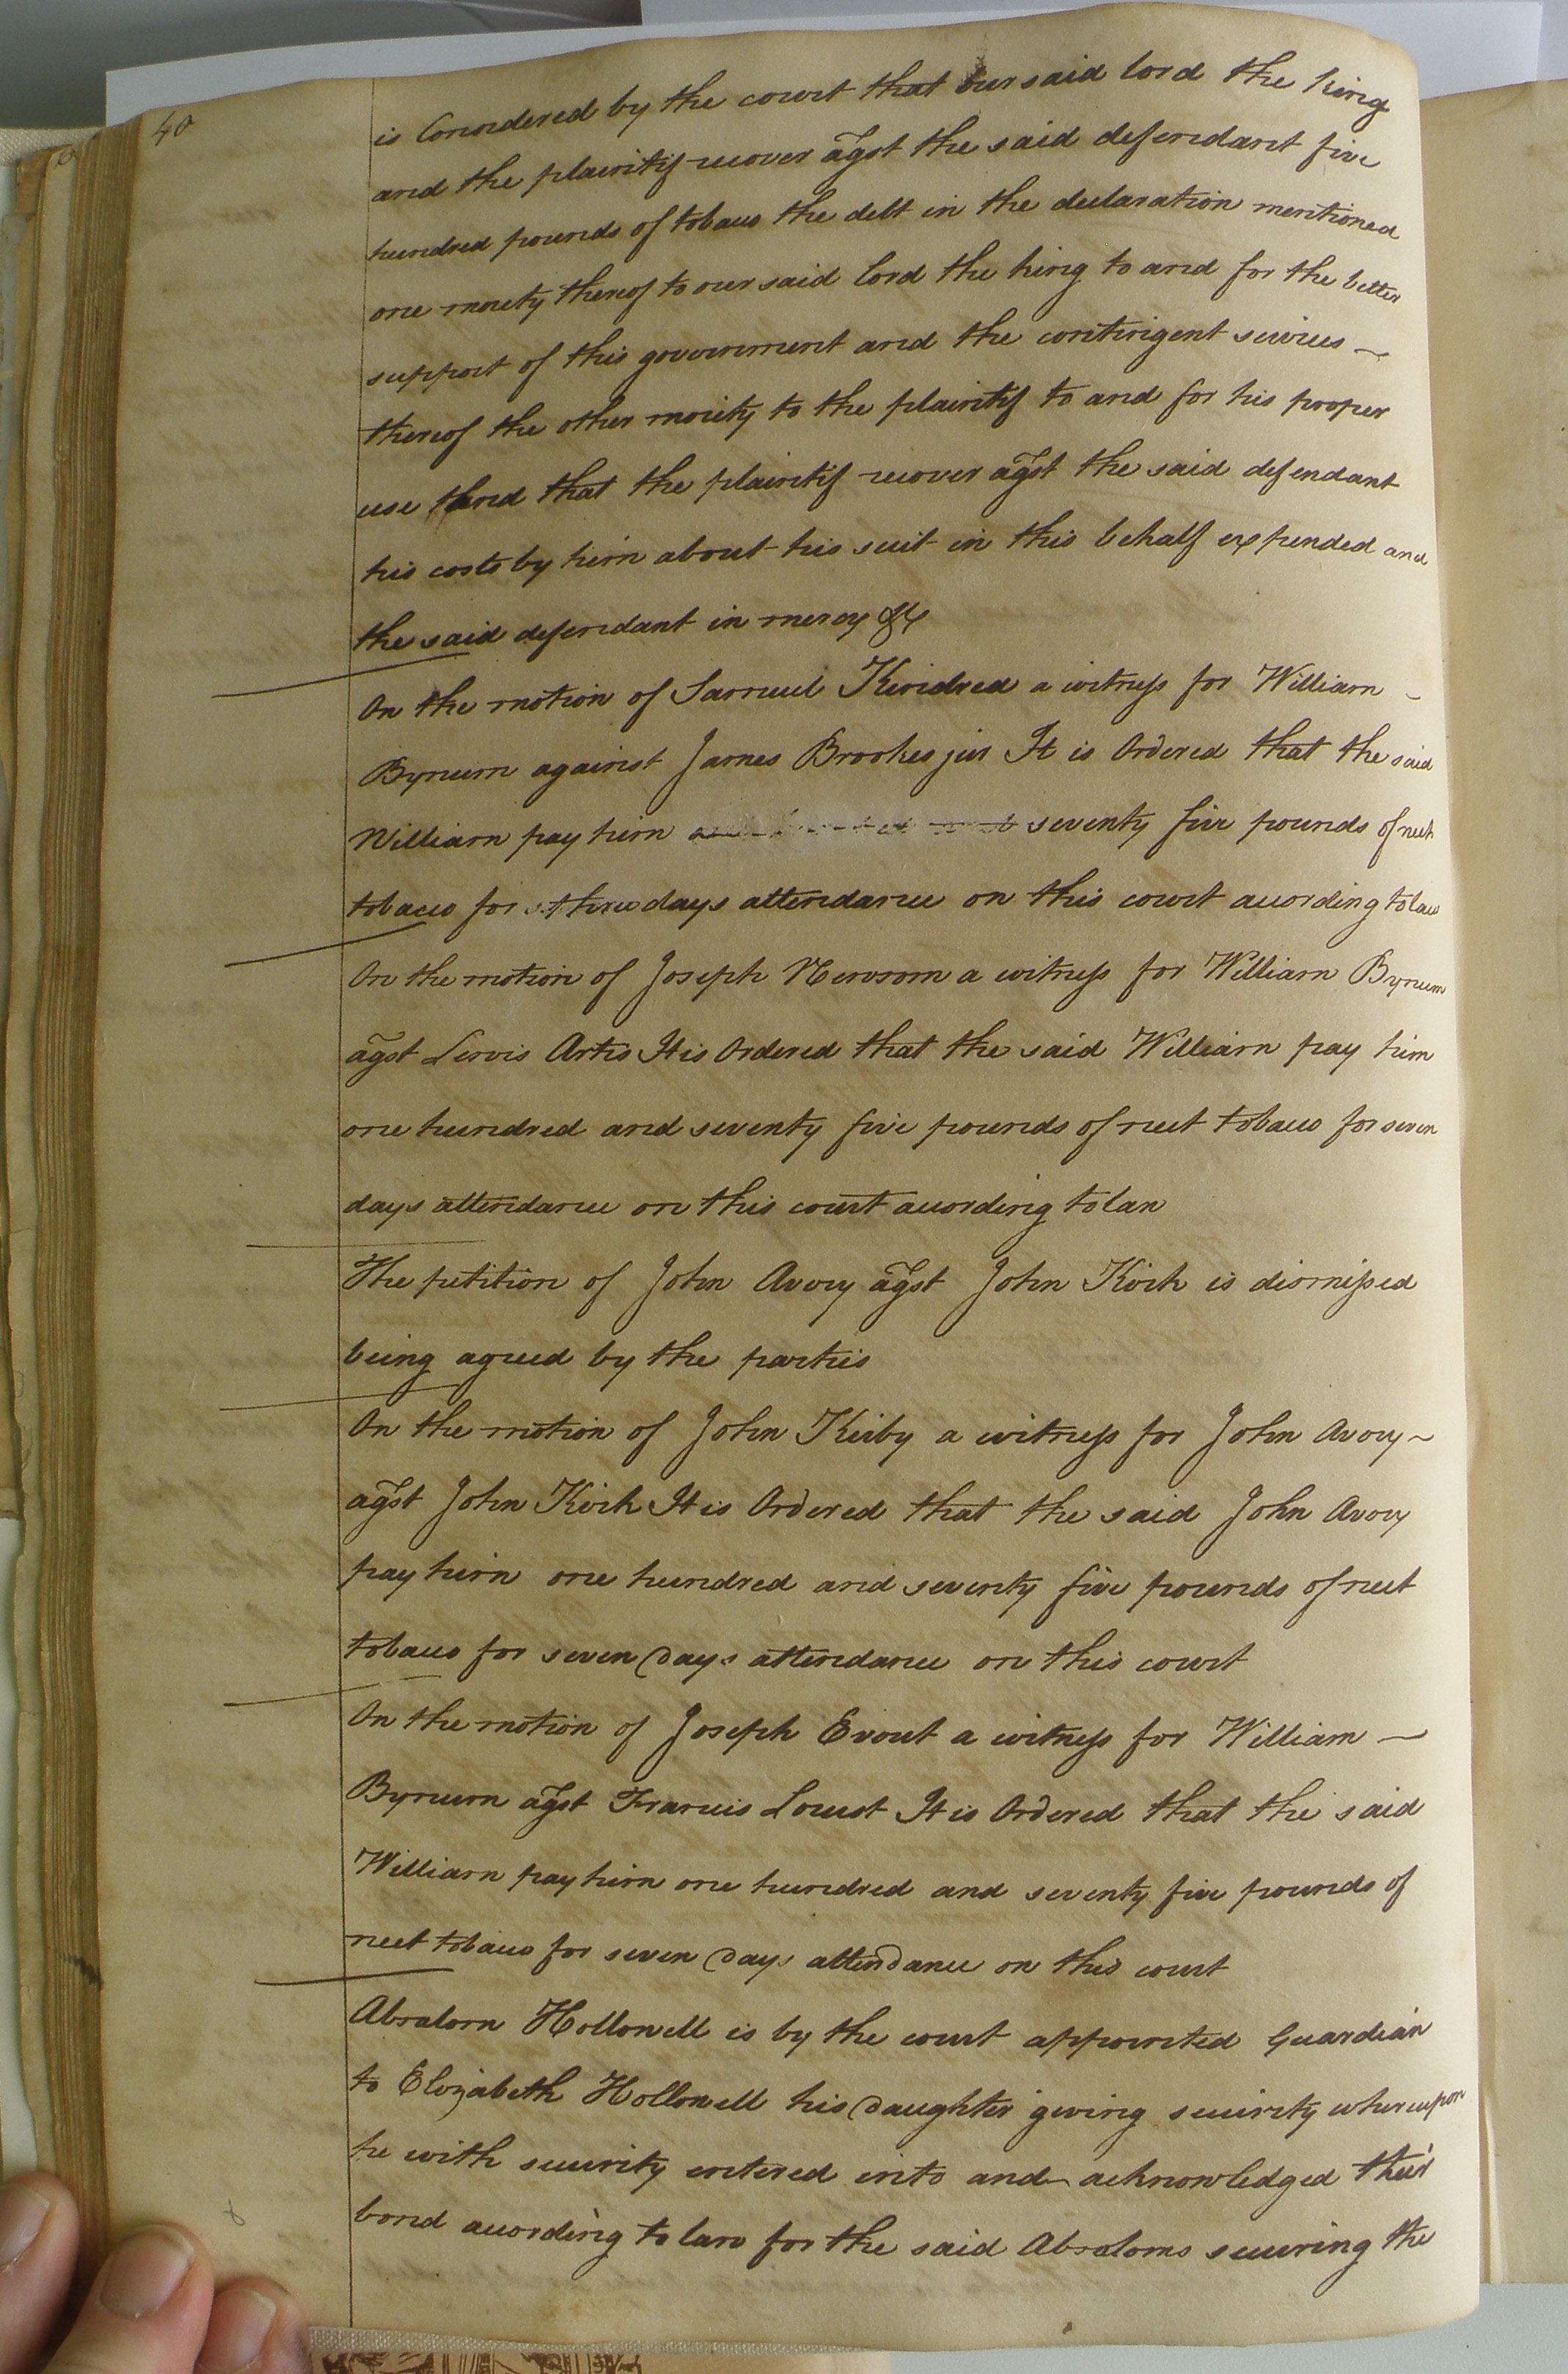 40
is Considered by the court that our said lord the king
and the plaintif recover agst the said defendant five
hundred pounds of tobacco the debt in the declaration mentioned
one moiety thereof to our said lord the king to and for the better
support of this government and the contingent services
thereof the other moiety to the plaintif to and for his proper
use And that the plaintif recover agst the said defendant
his costs by him about his suit in this behalf expended and
the said defendant in mercy &c
On the motion of Samuel Kindred a witness for William
Bynum against James Brookes jur It is Ordered that the said
William pay him seventy five pounds of neet
tobacco for three days attendance on this court according to law
On the motion of Joseph Newsom a witness for William Bynum
agst Lewis Artis It is Ordered that the said William pay him
one hundred and seventy five pounds of neet tobacco for seven
days attendance on this court according to law
The petition of John Avory agst John Kirk is dismissed
being agreed by the parties
On the motion of John Kirby a witness for John Avory
agst John Kirk It is Ordered that the said John Avory
pay him one hundred and seventy five pounds of neet
tobacco for seven days attendance on this court
On the motion of Joseph Exout a witness for William
Bynum agst Francis Locust It is Ordered that the said
William pay him one hundred and seventy five pounds of
neet tobacco for seven days attendance on this court
Absalom Hollowell is by the court appointed Guardian
to Elizabeth Hollowell his daughter giving security whereupon
he with security entered into and acknowledged their
bond according to law for the said Absaloms securing the